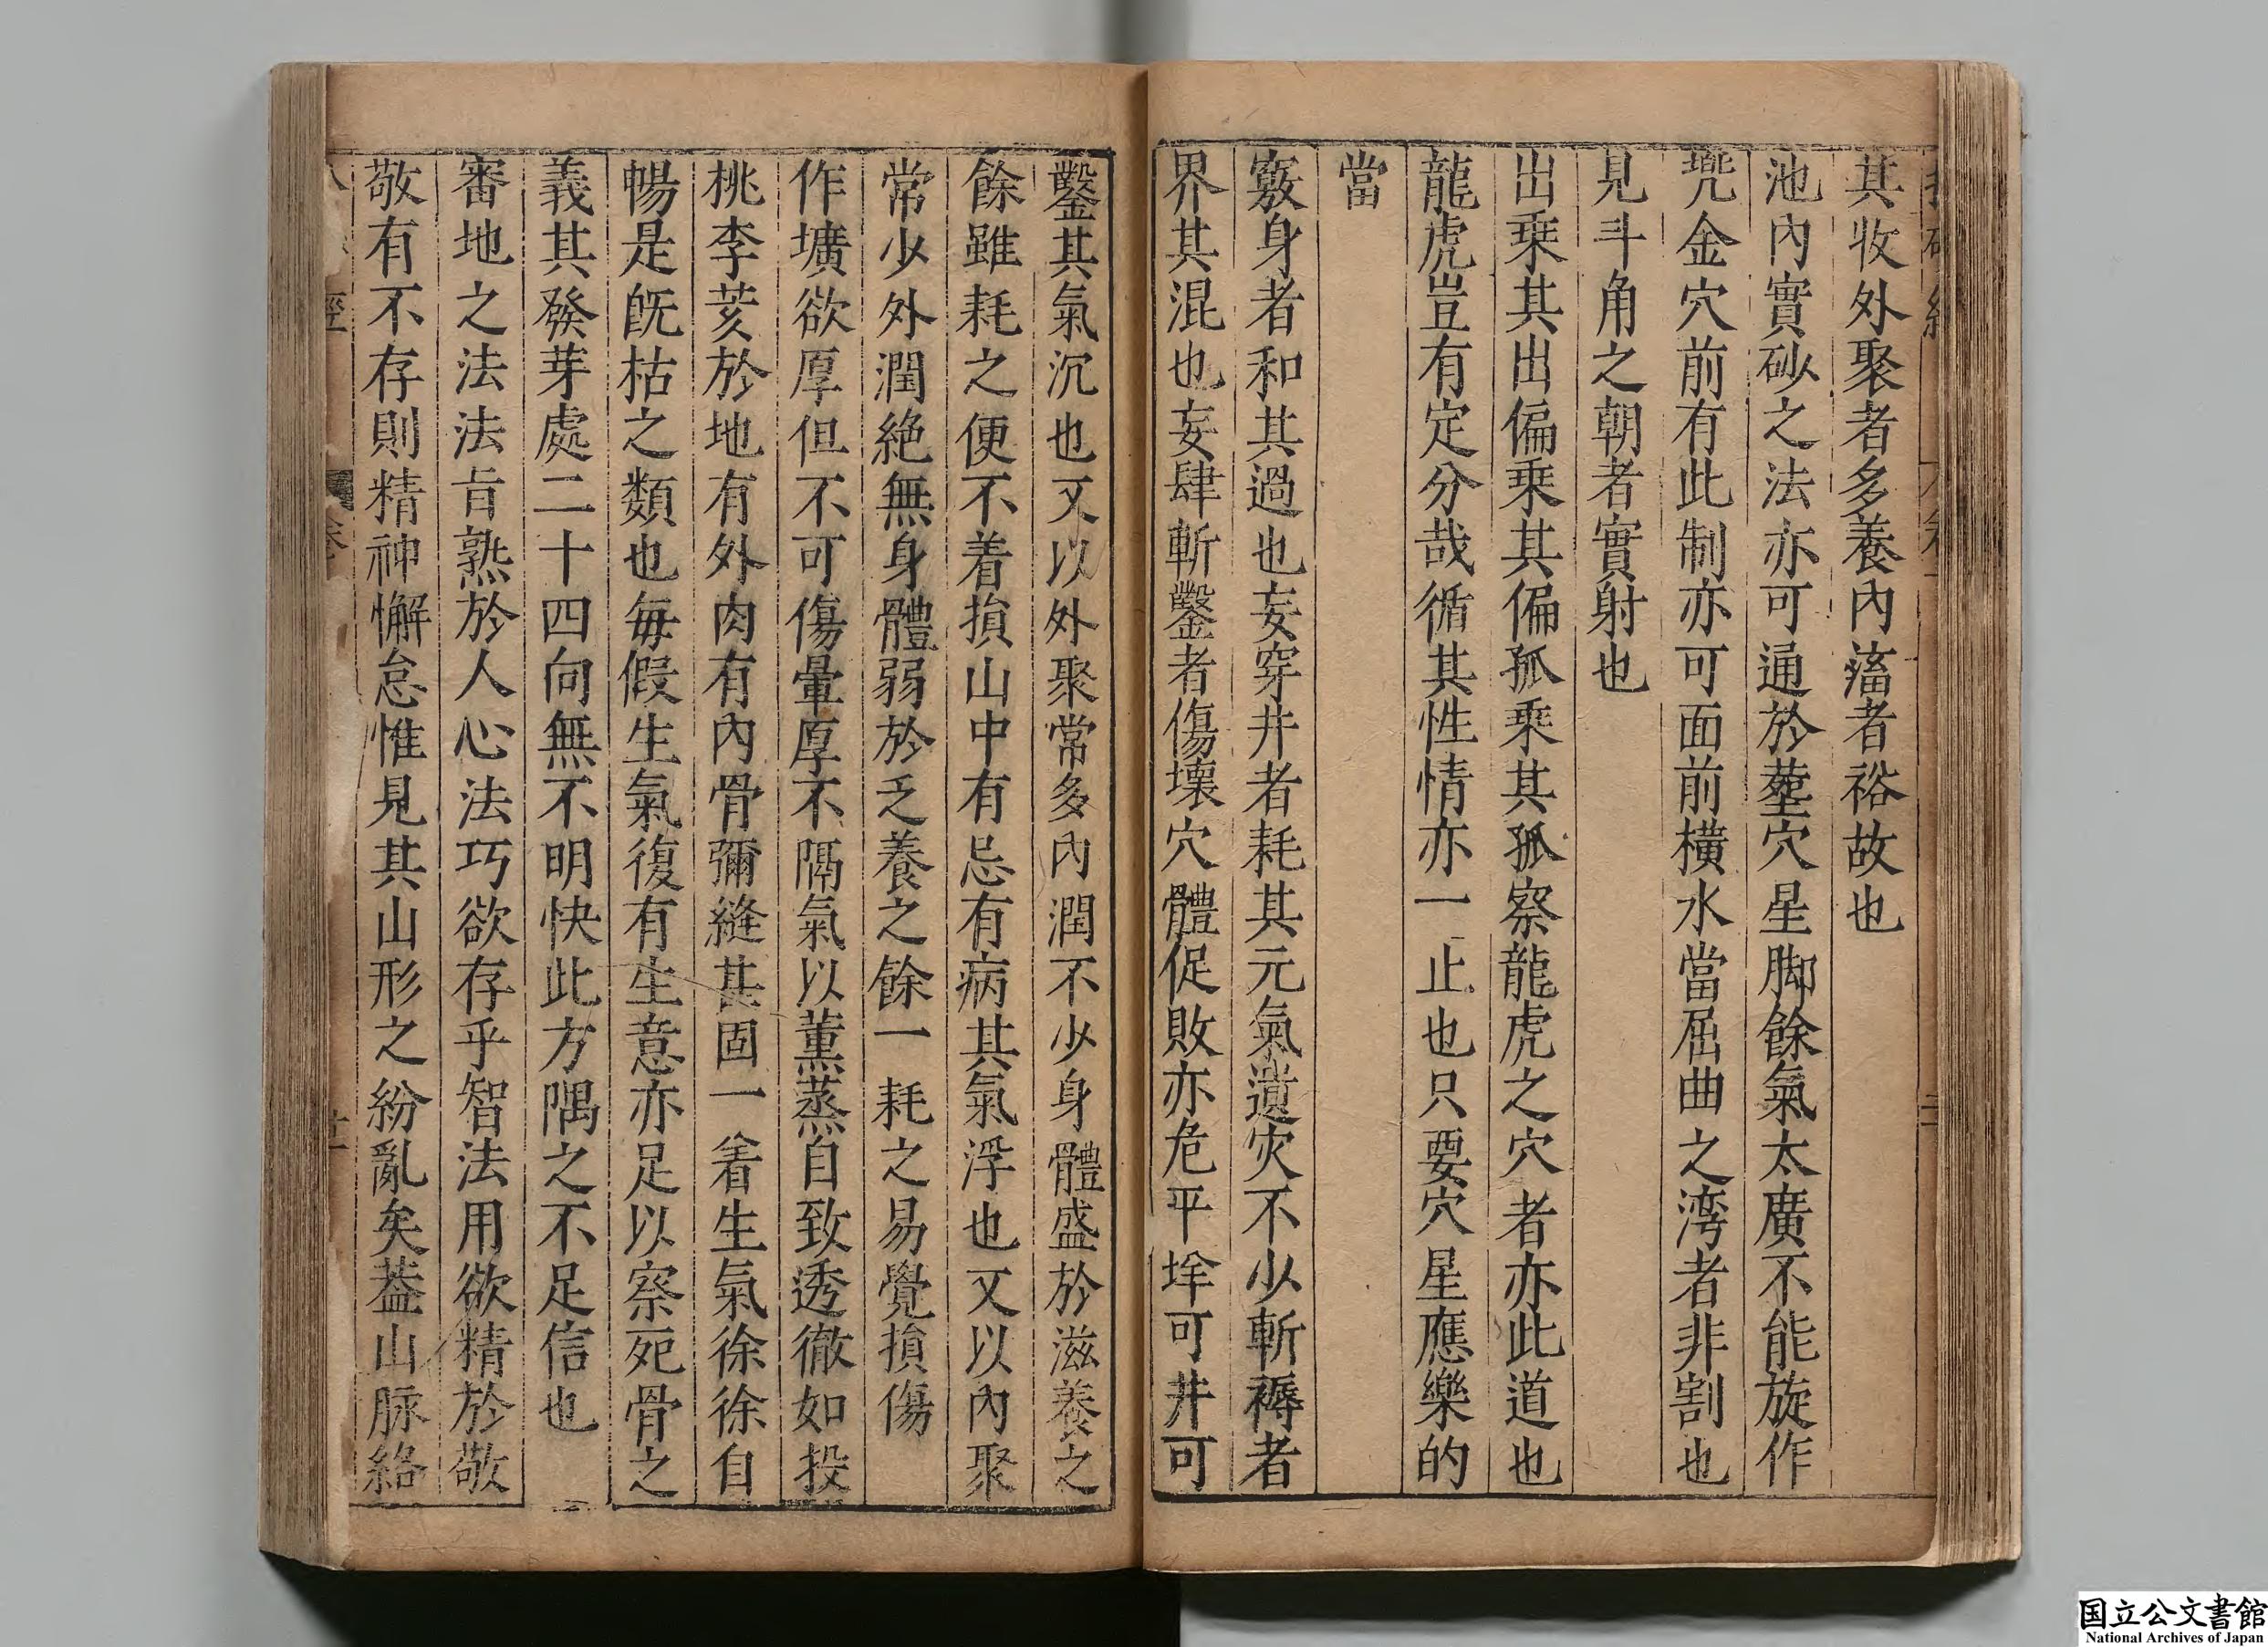 其收外聚者多養內滀者裕故也
池內實砂之法亦可通於塟穴星脚餘氣太廣不能旋作
兠金穴前有此制亦可面前橫水當屈曲之湾者非割也
見斗角之朝者實射也
出乗其出偏乗其偏孤乘其孤察龍虎之穴者亦此道也
龍虎豈有定分哉循其性情亦一止也只要穴星應樂的
當
竅身者和其過也妄穿井者耗其元氣遺灾不少斬褥者
界其混也妄肆斬鑿者傷壞穴體促敗亦危平垟可井可
鑿其氣沉也又以外聚常多內潤不少身體盛於滋養之
餘雖耗之便不着損山中有忌有病其氣浮也又以內聚
常少外潤絶無身體弱於乏養之餘一耗之易覺損傷
作壙欲厚但不可傷暈厚不隔氣以薰蒸自致透徹如投
桃李荄於地有外肉有內骨彌縫甚固一着生氣徐徐自
暢是旣枯之類也毎假生氣復有生意亦足以察死骨之
義其發芽處二十四向無不明快此方隅之不足信也
審地之法法旨熟於人心法巧欲存乎智法用欲精於敬
敬有不存則精神懈怠惟見其山形之紛亂矣葢山脉絡
国立公文書館
National Archives of Japan